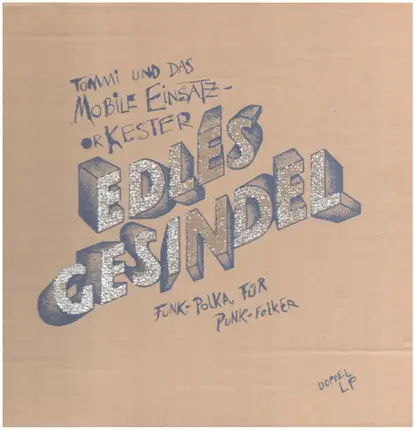 TOMMI UND DAS
MOBILE EINSATZ-
ORKESTER
EDLES
GESINDEL
FUNK-POLKA FÜR
PUNK-FOLKER
DOPPEL
LP